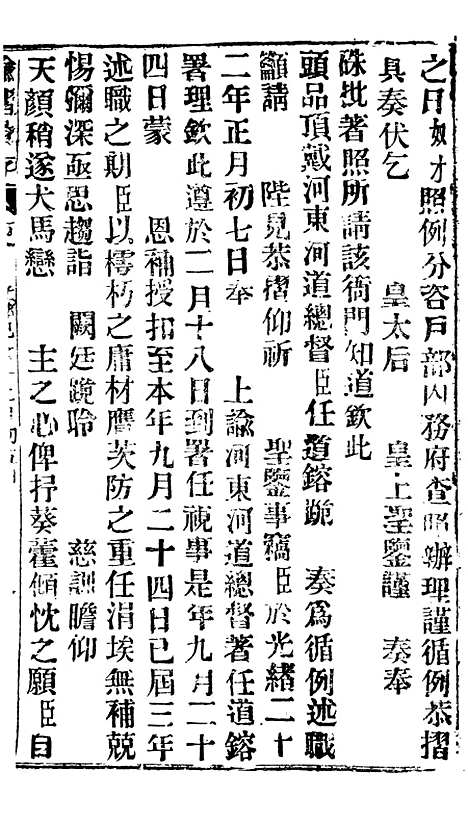 之日奴才照例分咨戶部內務府查照辦理謹循例恭摺
具奏伏乞　皇太后　皇上聖鑒謹　奏奉
硃批著照所請該衙門知道欽此
頭品頂戴河東河道總督臣任道鎔跪　奏爲循例述職
籲請　陛見恭摺仰祈　聖鑒事竊臣於光緒二十
二年正月初七日奉　上諭河東河道總督著任道鎔
署理欽此遵於二月十八日到署任視事是年九月二十
四日蒙　恩補授扣至本年九月二十四日已屆三年
述職之期臣以樗朽之庸材膺茭防之重任涓埃無補兢
惕彌深亟思趨詣　闕廷跪聆　慈訓瞻仰
天顔稍遂犬馬戀　主之心俾抒葵藿傾忱之願臣自